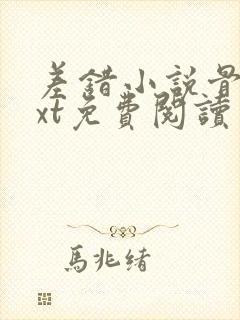 差錯小説骨
xt免費閱讀
馬兆緒